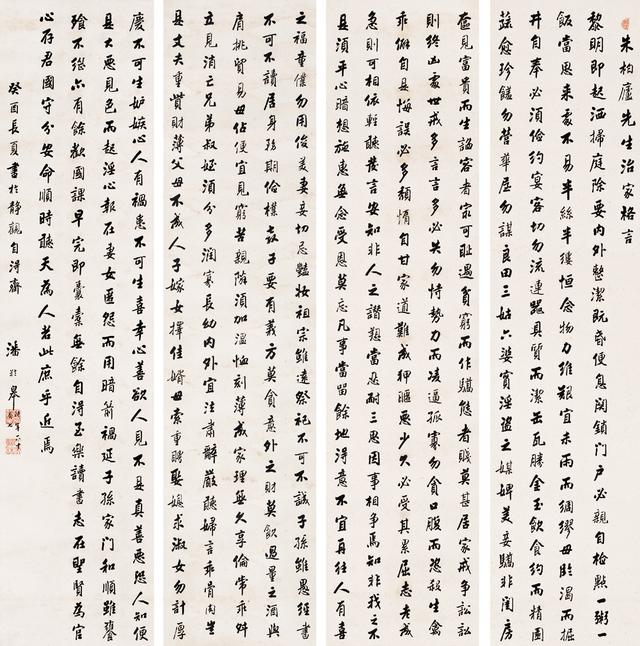 朱柏廬先生治家格言
黎明即起洒掃庭除要內外整潔既昏便息關鎖門戶必親自檢點一粥一
飯當思來處不易半絲半縷恒念物力維艱宜未雨而綢繆毋臨渴而掘
井自奉必須儉約宴客切勿流連器具質而潔缶瓦勝金玉飲食約而精園
蔬愈珍饈勿營華屋勿謀良田三姑六婆實淫盜之媒婢美妾嬌非閨房
之福童僕勿用俊美妻妾切忌艷妝祖宗雖遠祭祀不可不誠子孫雖愚經書
不可不讀居身務期儉樸教子要有義方莫貪意外之財莫飲過量之酒與
肩挑貿易毋佔便宜見窮苦親鄰須加溫恤刻薄成家理無久享倫常乖舛
立見消亡兄弟叔姪須分多潤寡長幼內外宜法肅辭嚴聽婦言乖骨肉豈
是丈夫重貲財薄父母不成人子嫁女擇佳婿毋索重聘娶媳求淑女勿計厚
奩見富貴而生諂容者最可耻遇貧窮而作驕態者賤莫甚居家戒爭訟訟
則終凶處世戒多言言多必失勿恃勢力而凌逼孤寡勿貪口腹而恣殺生禽
乖僻自是悔誤必多頹惰自甘家道難成狎暱惡少久必受其累屈志老成
急則可相依輕聽發言安知非人之譖愬當忍耐三思因事相爭焉知非我之不
是須平心暗想施惠無念受恩莫忘凡事當留餘地得意不宜再往人有喜
慶不可生妒嫉心人有禍患不可生喜幸心善欲人見不是真善惡恐人知便
是大惡見色而起淫心報在妻女匿怨而用暗箭禍延子孫家門和順雖饔
飧不繼亦有餘歡國課早完即囊橐無餘自得至樂讀書志在聖賢為官
心存君國守分安命順時聽天為人若此庶乎近焉
癸酉長夏書於靜觀自得齋 潘齡皋